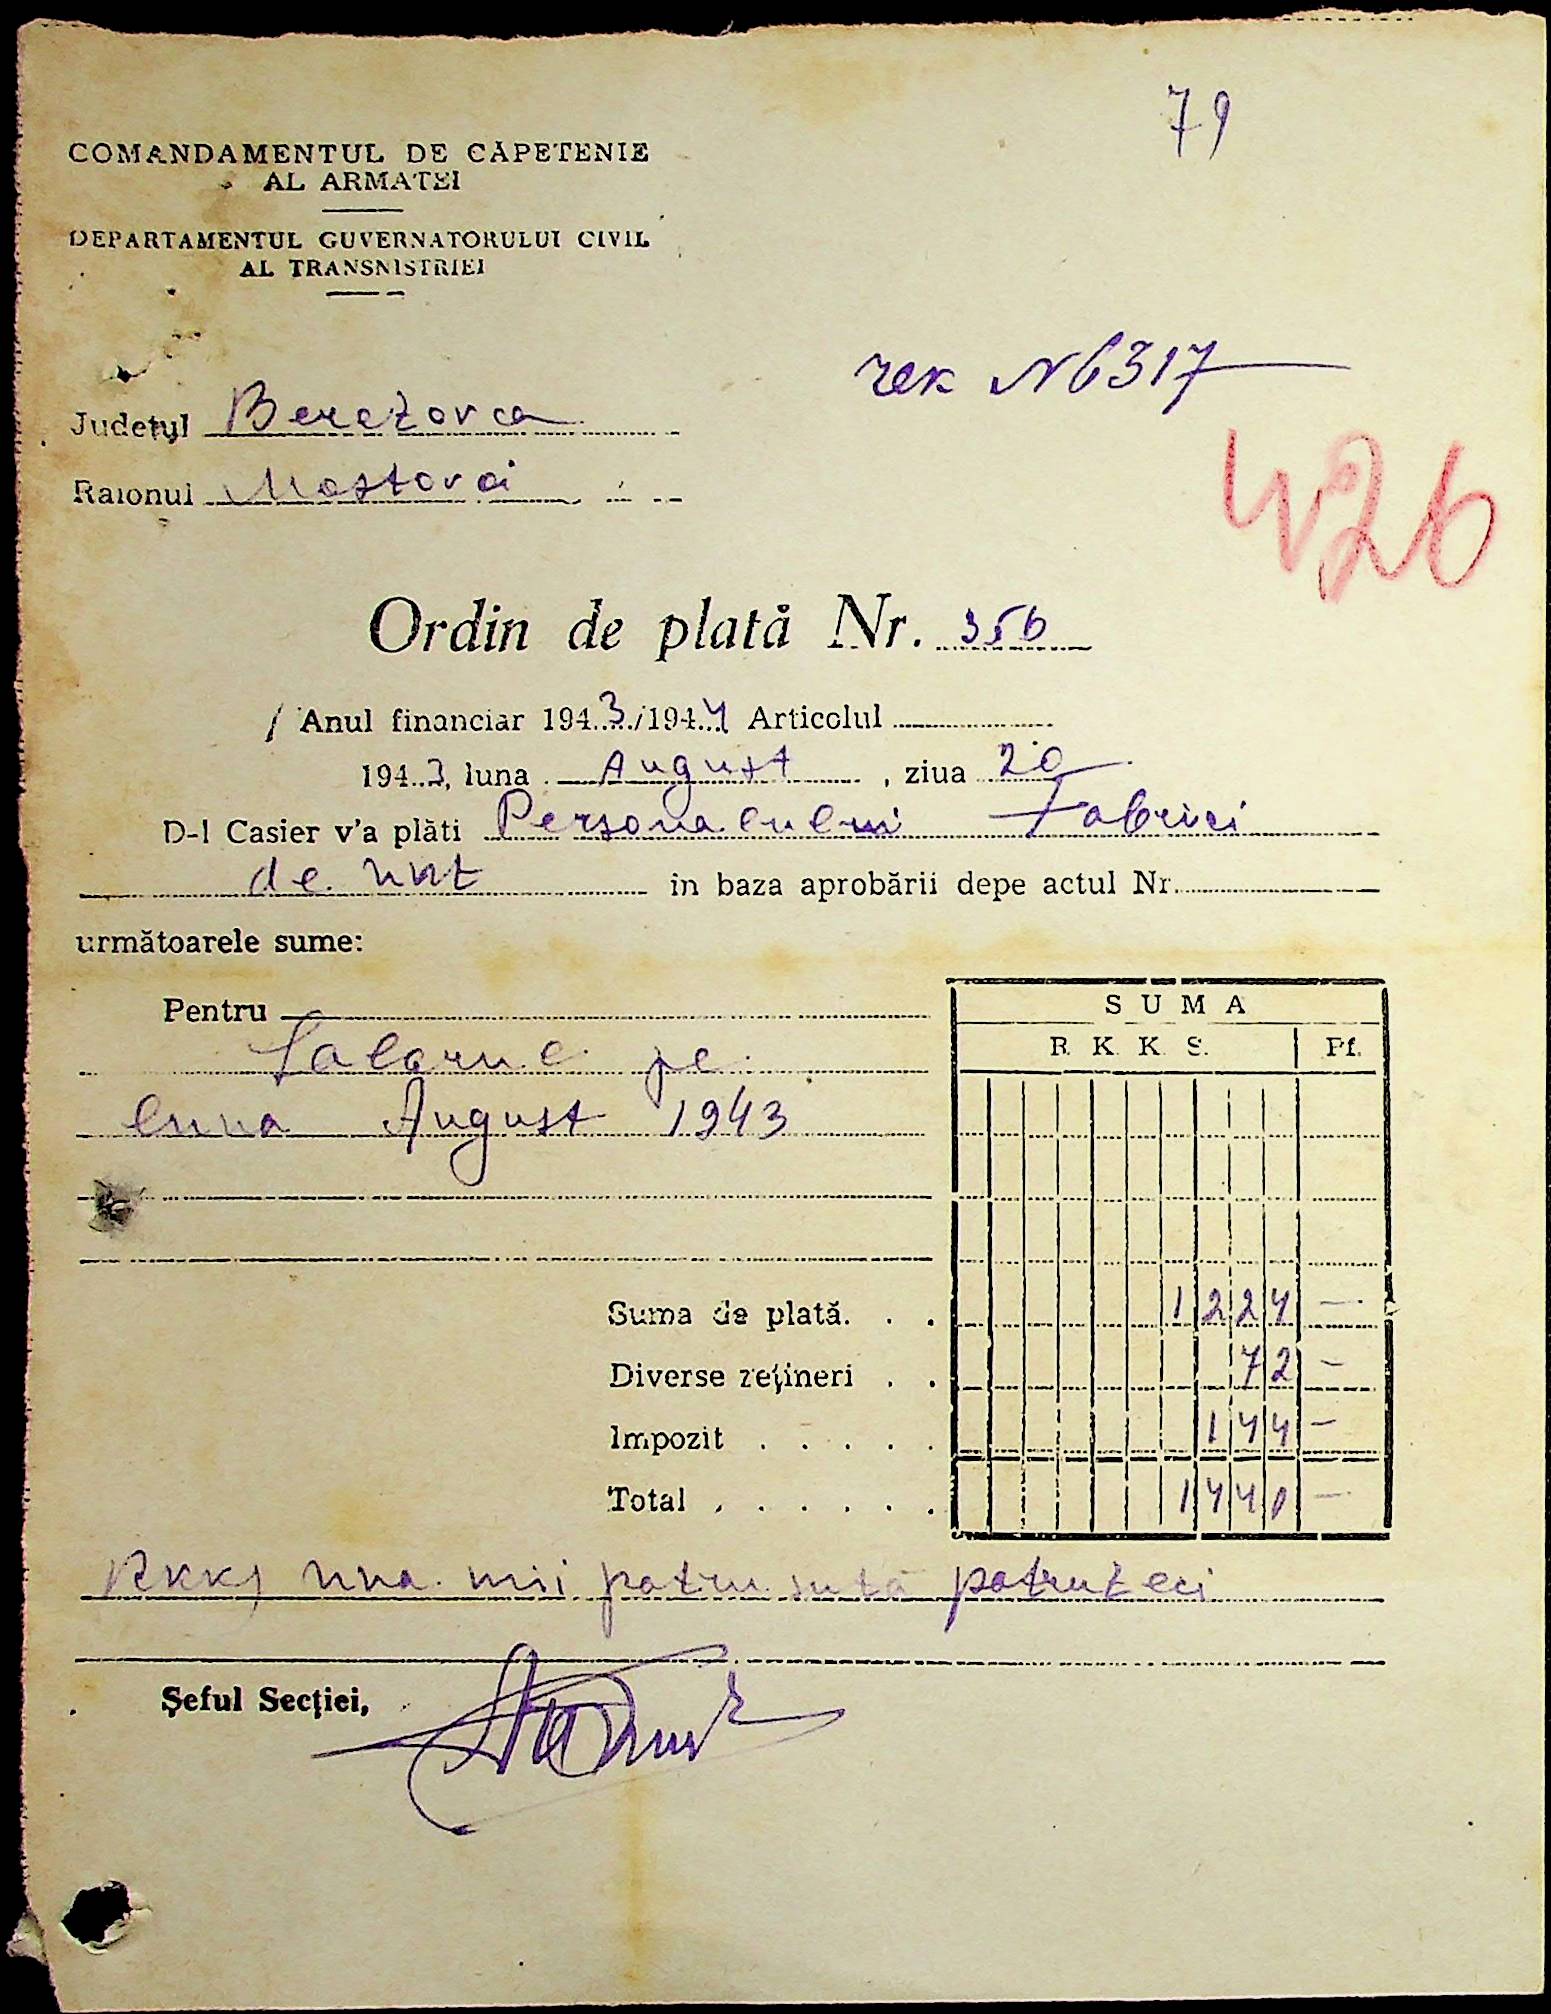 79
COMANDAMENTUL DE CĂPETENIE
AL ARMATEI
DEPARTAMENTUL GUVERNATORULUI CIVIL
AL TRANSNISTRIEI
rek N 6317
Județul Berezovca
Raionul Mostovoi
426
Ordin de plată Nr. 356
Anul financiar 1943/1944 Articolul
1943, luna August, ziua 20
D-l Casier v'a plăti Personalului Fabrici
de unt in baza aprobării depe actul Nr.
următoarele sume:
Pentru
Salarul pe
luna August 1943
SUMA
R. K. K. S. Pf.
Suma de plată. . . 1224 —
Diverse rețineri . . 72 —
Impozit . . . . . 144 —
Total . . . . . . 1440 —
RKKS una mii patru sută patruzeci
Șeful Secției,